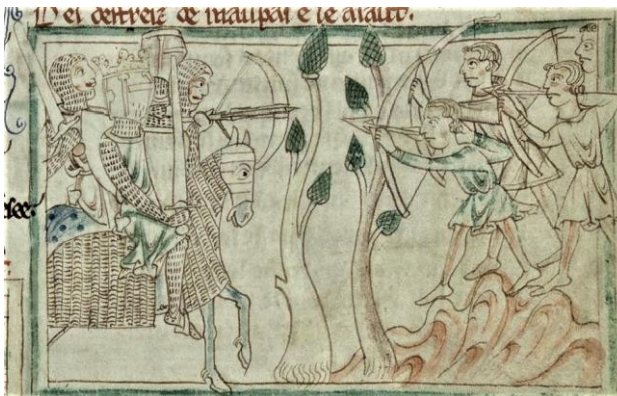 Del destreiz de maupas e le araut.